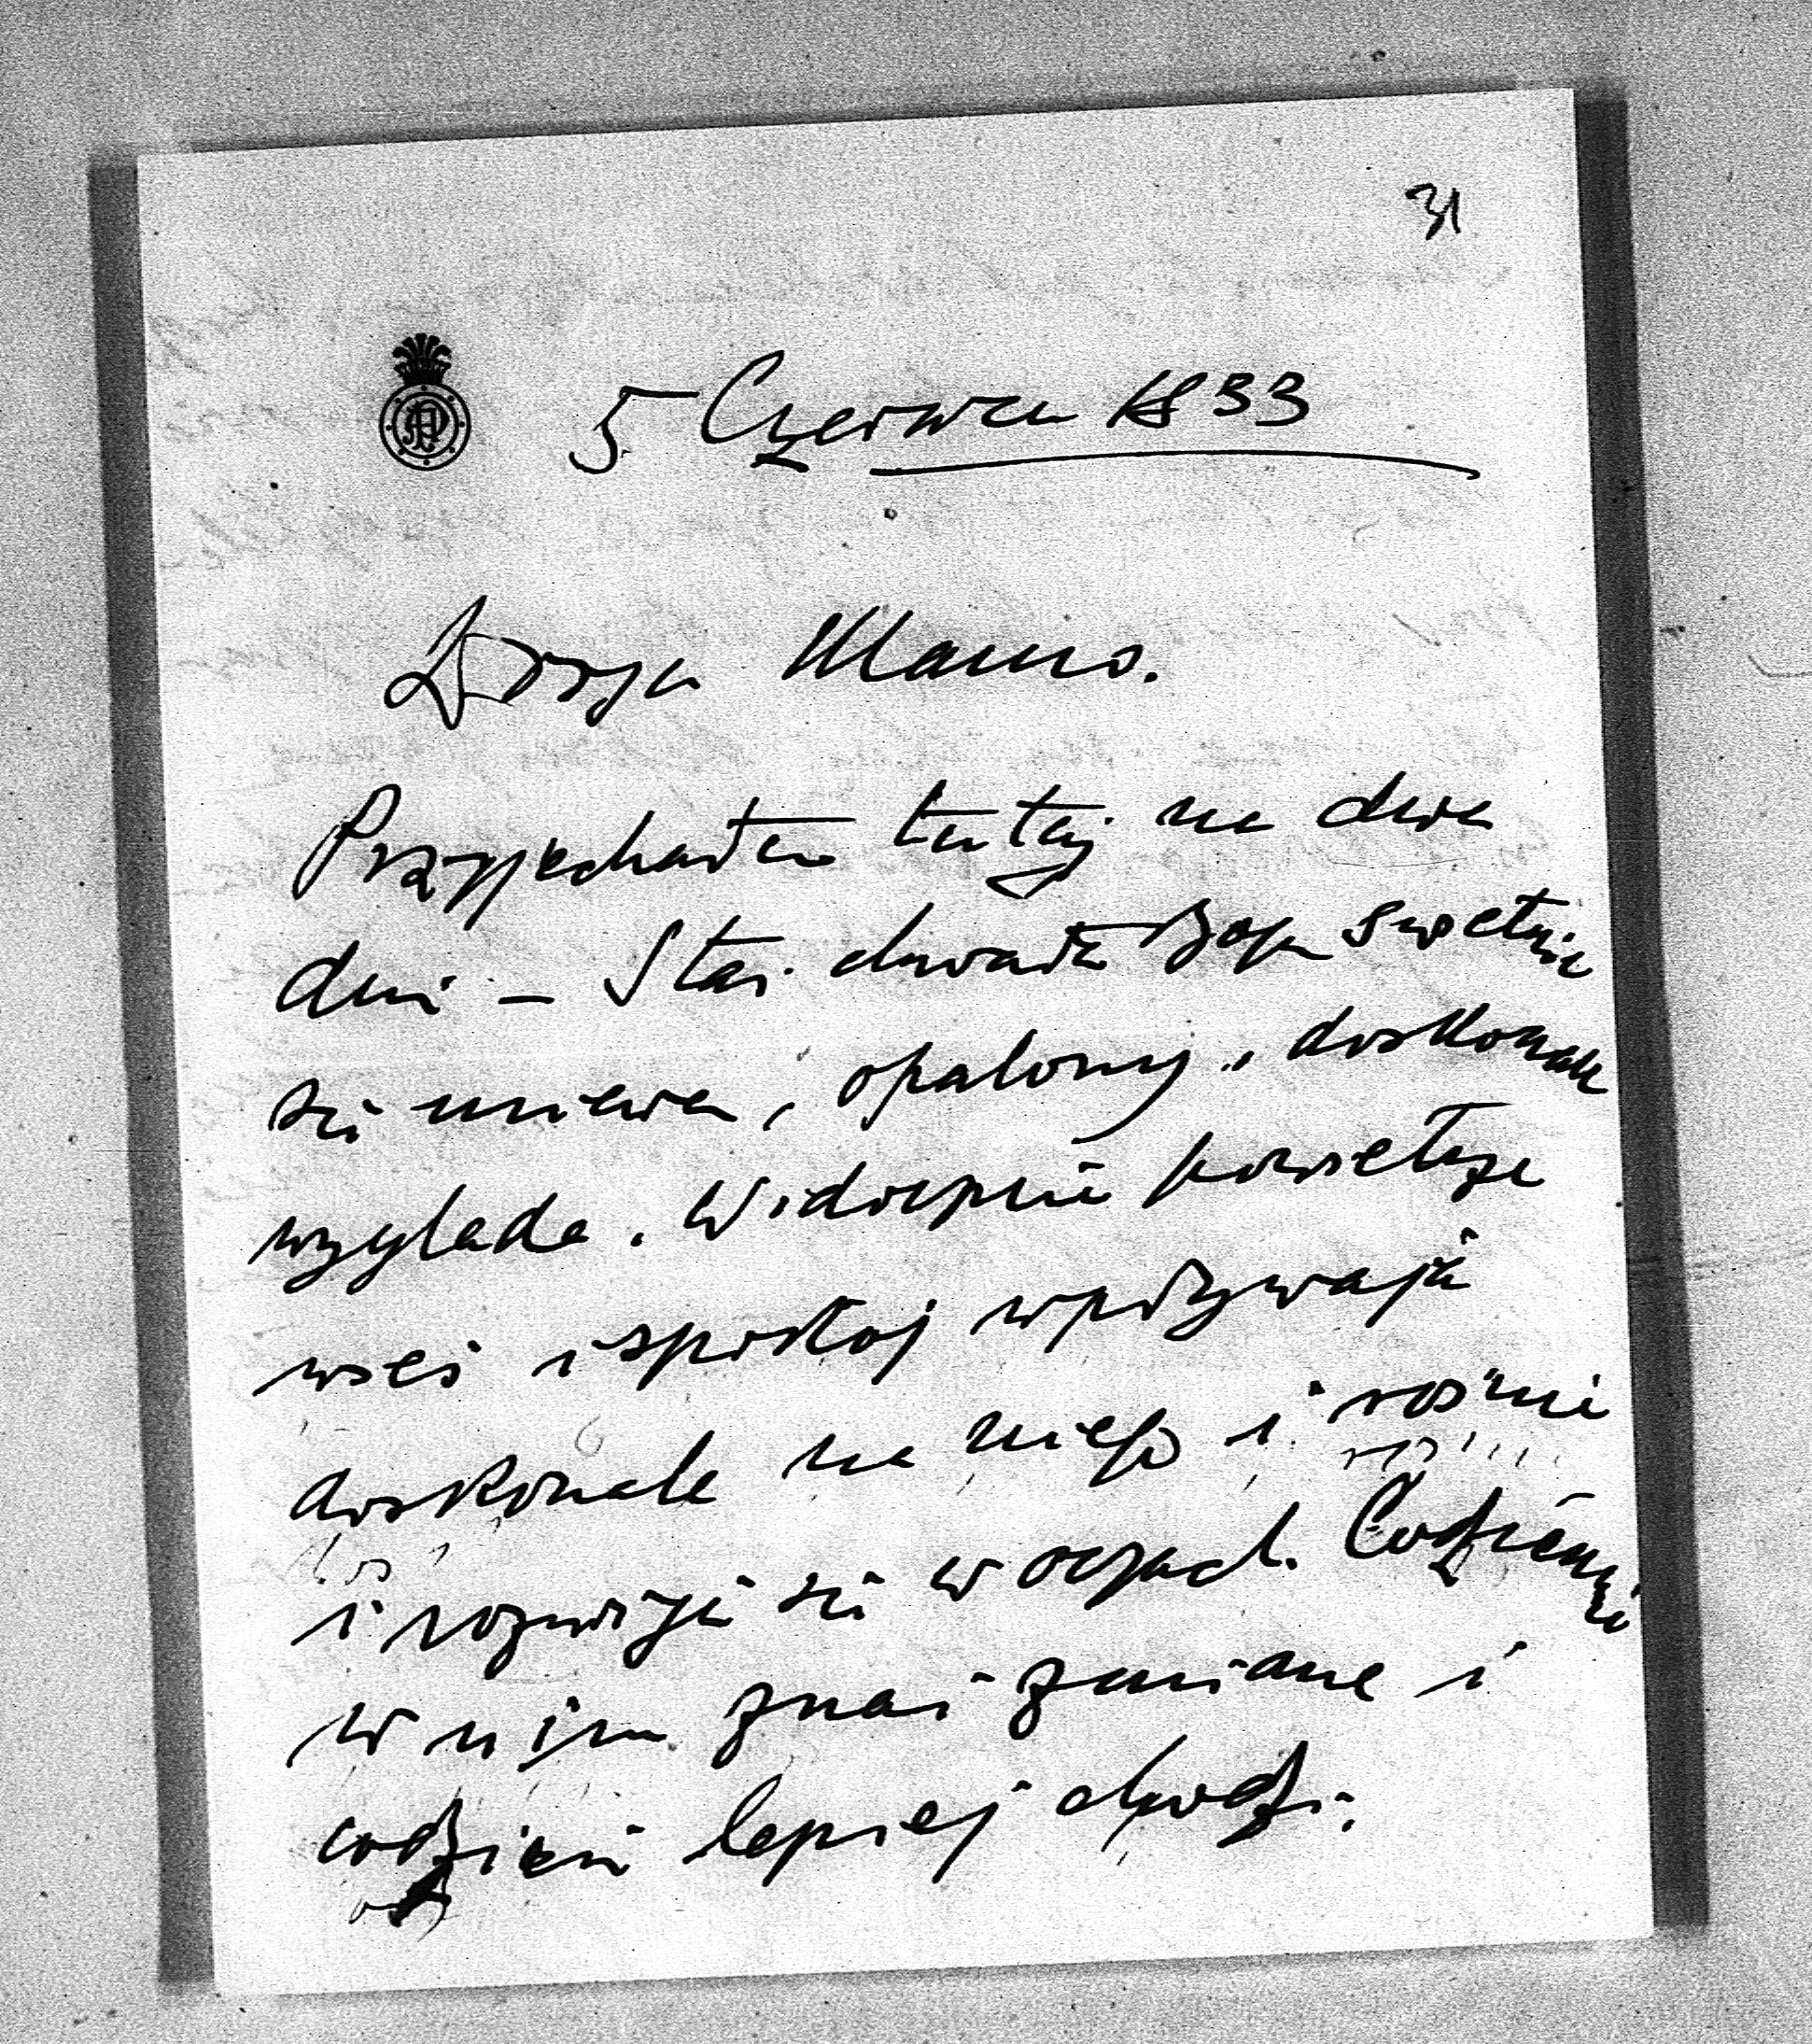 31
5 Czerwca 1833
Droga Mamo.
Przyjechałem tutaj na dwa
dni – Staś chwała Bogu świetnie
się miewa, opalony, doskonale
wygląda. Widocznie powietrze
wsei i spokój wpływają
doskonale na niego i rośnie
i rozwija się w oczach. Codzień
w nim znać zmianę i
codzień lepiej chodzi.